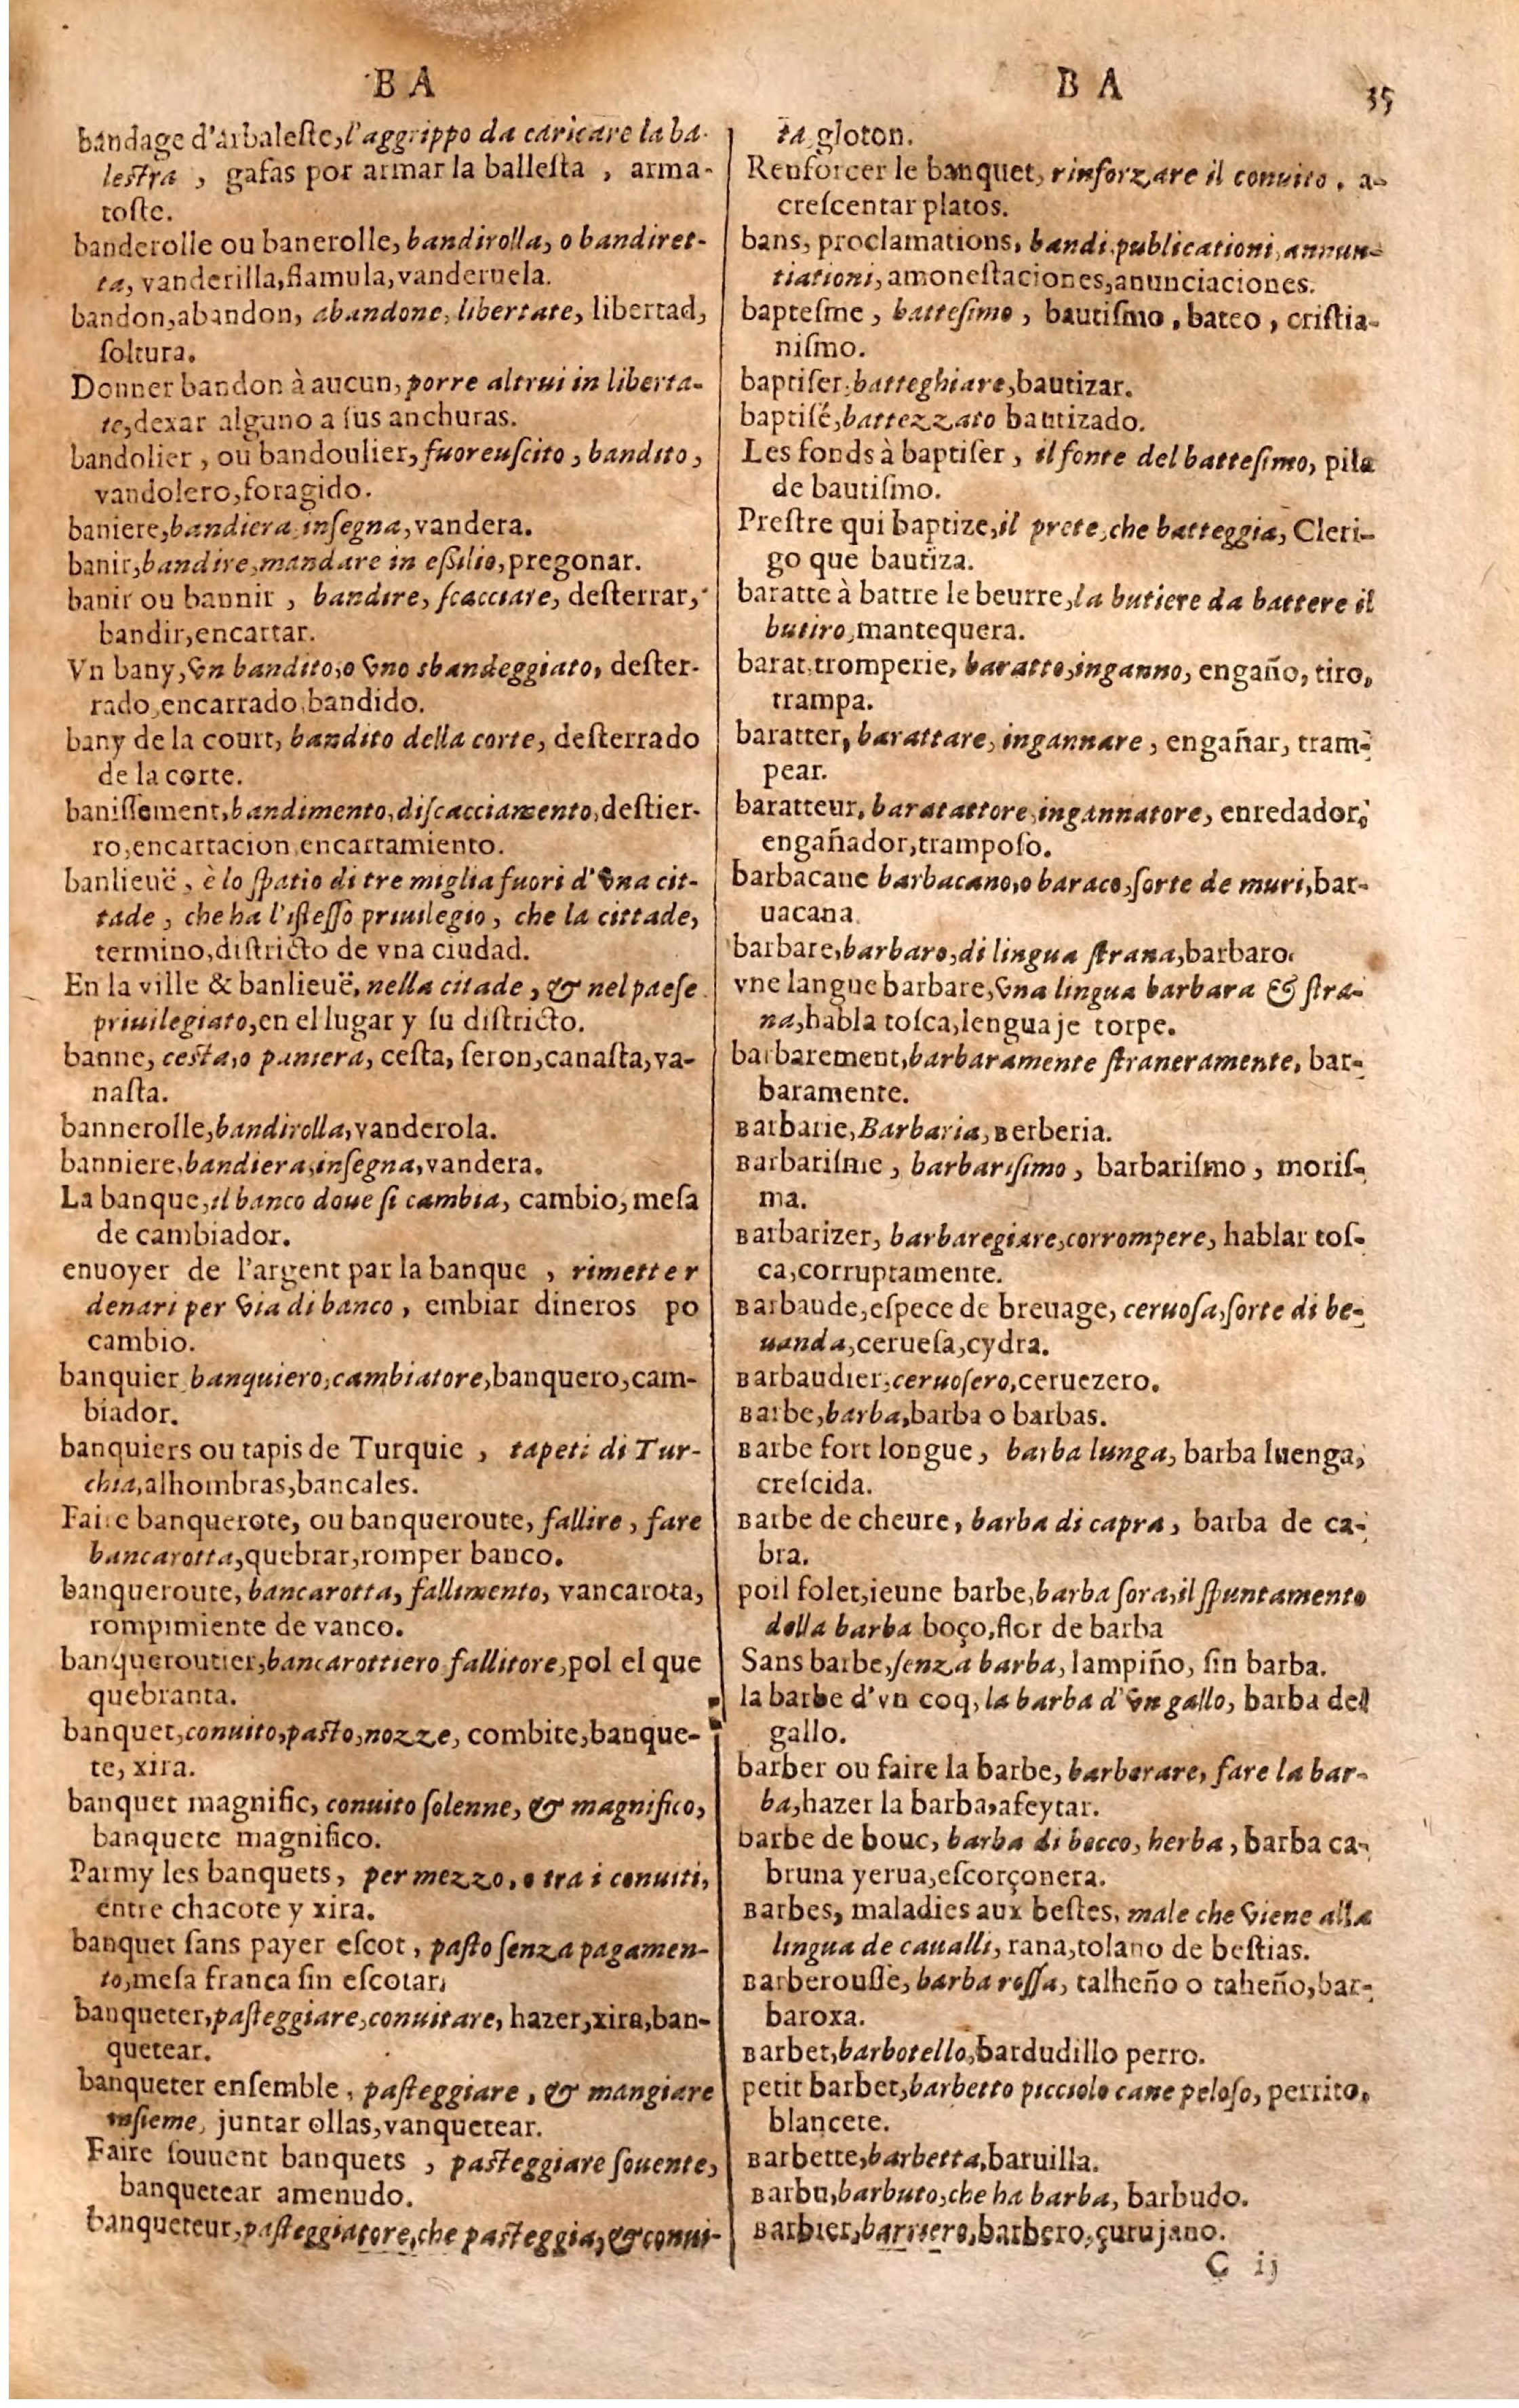 B A
bandage d'arbaleſte, l'aggrippo da caricare la ba-
leſtra , gafas por armar la balleſta , arma-
toſte.
banderolle ou banerolle, bandirolla, o bandiret-
ta, vanderilla, flamula, vanderuela.
bandon, abandon, abandone, libertate, libertad,
ſoltura.
Donner bandon à aucun, porre altrui in liberta-
te, dexar alguno a ſus anchuras.
bandolier , ou bandoulier, fuoreuſcito , bandito ,
vandolero, foragido.
baniere, bandiera inſegna, vandera.
banir, bandire, mandare in eſſilio, pregonar.
banir ou bannir , bandire, ſcacciare, deſterrar,
bandir, encartar.
Vn bany, vn bandito, o vno sbandeggiato, deſter-
rado, encarrado, bandido.
bany de la court, bandito della corte, deſterrado
de la corte.
baniſſement, bandimento, diſcacciamento, deſtier-
ro, encartacion encartamiento.
banlieuë , è lo ſpatio di tre miglia fuori d'vna cit-
tade , che ha l'iſteſſo priuilegio , che la cittade,
termino, diſtricto de vna ciudad.
En la ville & banlieuë, nella citade , & nel paeſe
priuilegiato, en el lugar y ſu diſtricto.
banne, ceſta, o paniera, ceſta, ſeron, canaſta, va-
naſta.
bannerolle, bandirolla, vanderola.
banniere, bandiera, inſegna, vandera.
La banque, il banco doue ſi cambia, cambio, meſa
de cambiador.
enuoyer de l'argent par la banque , rimetter
denari per via di banco , embiar dineros po
cambio.
banquier banquiero, cambiatore, banquero, cam-
biador.
banquiers ou tapis de Turquie , tapeti di Tur-
chia, alhombras, bancales.
Faire banquerote, ou banqueroute, fallire , fare
bancarotta, quebrar, romper banco.
banqueroute, bancarotta, fallimento, vancarota,
rompimiente de vanco.
banqueroutier, bancarottiero fallitore, pol el que
quebranta.
banquet, conuito, paſto, nozze, combite, banque-
te, xira.
banquet magnific, conuito ſolenne, & magnifico,
banquete magnifico.
Parmy les banquets , per mezzo, o tra i conuiti,
entre chacote y xira.
banquet ſans payer eſcot , paſto ſenza pagamen-
to, meſa franca ſin eſcotar,
banqueter, paſteggiare, conuitare, hazer, xira, ban-
quetear.
banqueter enſemble , paſteggiare , & mangiare
inſieme, juntar ollas, vanquetear.
Faire ſouuent banquets , paſteggiare ſouente,
banquetear amenudo.
banqueteur, paſteggiatore, che paſteggia, & conui-
B A 35
ta, gloton.
Renforcer le banquet, rinforzare il conuito , a-
creſcentar platos.
bans, proclamations, bandi, publicationi, annun-
tiationi, amoneſtaciones, anunciaciones.
bapteſme , batteſimo , bautiſmo , bateo , criſtia-
niſmo.
baptiſer, batteghiare, bautizar.
baptiſé, battezzato bautizado.
Les fonds à baptiſer , il fonte del batteſimo, pila
de bautiſmo.
Preſtre qui baptize, il prete, che batteggia, Cleri-
go que bautiza.
baratte à battre le beurre, la butiere da battere il
butiro, mantequera.
barat, tromperie, baratto, inganno, engaño, tiro,
trampa.
baratter, barattare, ingannare , engañar, tram-
pear.
baratteur, baratattore, ingannatore, enredador,
engañador, trampoſo.
barbacane barbacano, o baraco, ſorte de muri, bar-
uacana.
barbare, barbaro, di lingua ſtrana, barbaro.
vne langue barbare, vna lingua barbara & ſtra-
na, habla toſca, lenguaje torpe.
barbarement, barbaramente ſtraneramente, bar-
baramente.
Barbarie, Barbaria, Berberia.
Barbariſme , barbariſimo , barbariſmo , moriſ-
ma.
Barbarizer, barbaregiare, corrompere, hablar toſ-
ca, corruptamente.
Barbaude, eſpece de breuage, ceruoſa, ſorte di be-
uanda, cerueſa, cydra.
Barbaudier, ceruoſero, ceruezero.
Barbe, barba, barba o barbas.
Barbe fort longue , barba lunga, barba luenga,
creſcida.
Barbe de cheure, barba di capra , barba de ca-
bra.
poil folet, ieune barbe, barba ſora, il ſpuntamento
della barba boço, flor de barba
Sans barbe, ſenza barba, lampiño, ſin barba.
la barbe d'vn coq, la barba d'vn gallo, barba del
gallo.
barber ou faire la barbe, barberare, fare la bar-
ba, hazer la barba, afeytar.
barbe de bouc, barba di becco, herba , barba ca-
bruna yerua, eſcorçonera.
Barbes, maladies aux beſtes, male che viene alla
lingua de caualli, rana, tolano de beſtias.
Barberouſſe, barba roſſa, talheño o taheño, bar-
baroxa.
Barbet, barbotello, bardudillo perro.
petit barbet, barbetto picciolo cane peloſo, perrito,
blancete.
Barbette, barbetta, baruilla.
Barbu, barbuto, che ha barba, barbudo.
Barbier, barriero, barbero, çurujano.
C ij